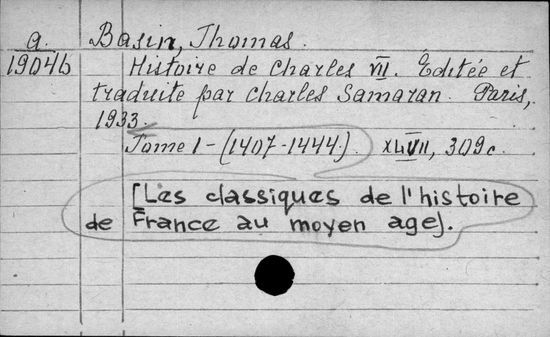 a. Basin, Thomas.
1904b Histoire de Charles VII. Editée et
traduite par Charles Samaran. Paris,
1933.
Tome 1 - (1407-1444). XLVII, 309c.
[Les classiques de l'histoire
de France au moyen age].